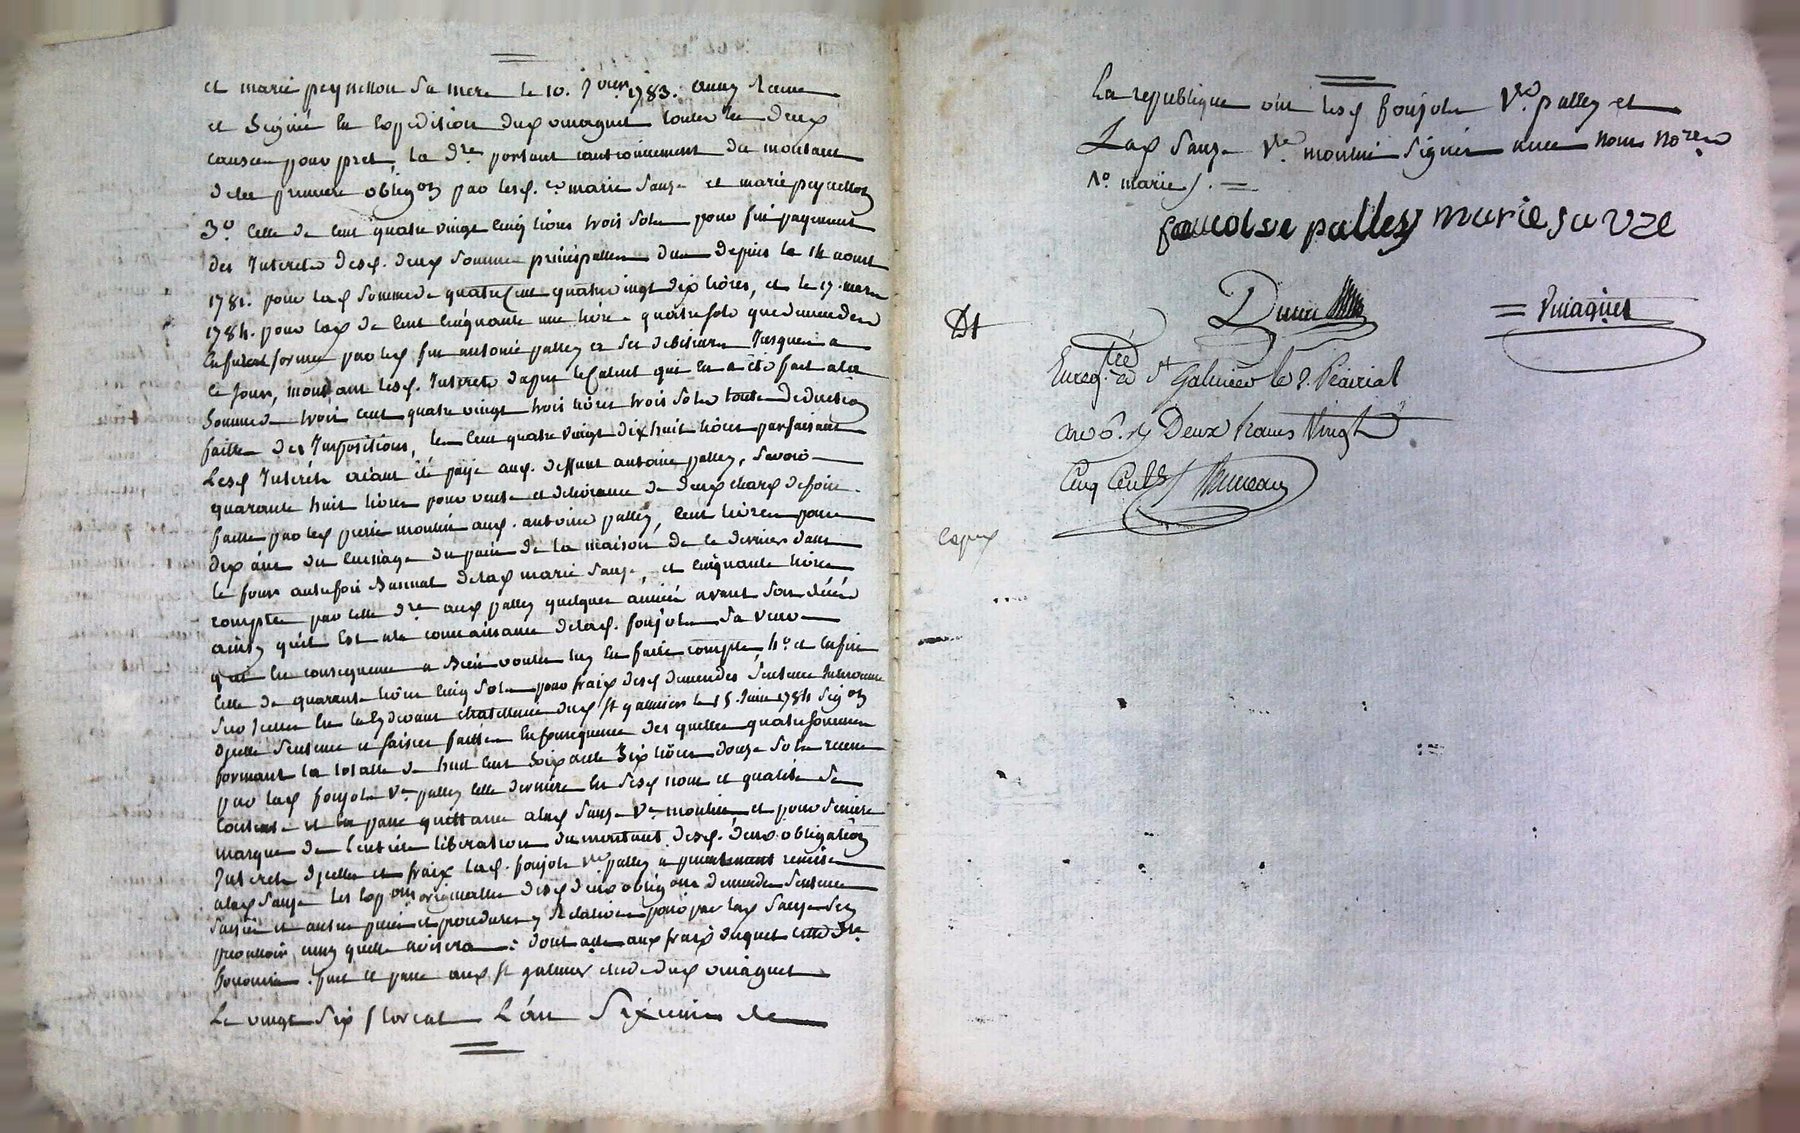 et marie peynellon sa mere le 10. 1783. aussy
et signé en Expedition dud vinagnet toutes les deux
cause pour pret, la dre portant cautionnement du montant
de lad premiere obligon par lesd. marie sauze et marie peynellon
3o celle de cent quatre vingt cinq livres trois sols pour fin payement
des Interets desd. deux sommes principalles dues depuis le 14 aoust
1781. pour lad somme de quatre cent quatre vingt dix livres, et le 17. mars
1784. pour lad de cent cinquante une livre quatre sols que demandes
en furent formees par led feu antoine palley et ses debiteurs Jusques a
ce jour, montant lesd. Interets dapres le Calcul qui en a été fait ala
somme de trois cent quatre vingt trois livres trois sols toute deduction
faitte des Impositions, les cent quatre vingt dix huit livres parfaisant
Lesd Interets aiant été payé aud. deffunt antoine palley, savoir
quarante huit livres pour vente et délivrance de deux chars de foin
faitte par led pierre moulin aud. antoine palley, cent livres pour
dix ans du cuisage du pain de la maison de ce dernier dans
le four autrefois Bannal delad marie sauze, et cinquante livres
compté par cette dre aud palley quelques années avant son décés
ainsy quil est ala connaissance delad. foujols sa veuve
qui en consequence a bien voulu luy en faire compte, 4o et enfin
celle de quarante livres cinq sols pour fraix desd demandes sentence Intervenue
sur icelles en la cydevant chatellenie dud st galmier le 15. Juin 1784 sigon
dycelle sentence et saisies faittes En consequence des quelles quatre sommes
formant la totalle de huit cent soixante six livres douze sols recue
par lad foujols ve palley cette derniere en sesd nom et qualité se
contente et en passe quittance alad sauze ve moulin et pour sincere
marque de l'entiere liberation du montant desd. deux obligations
Interets dycelles et fraix lad. foujols ve palley a presentement remis
alad sauze les expons originalles desd deux obligons demandes sentence
saisies et autres pieces et procedures y relatives pour par lad sauze sen
prevaloir ainsy quelle avisera: dont acte aux fraix duquel cette dre
fournira. fait et passé aud. st galmier etude dud vinagnet
Le vingt six floreal L'an sixieme de
La republique ont lesd foujols ve. palley et
Lad sauze ve. moulin signés avec nous nores
No. marie /.
francoise palley marie sauze
Vinagnet
Enregtré a st Galmier le 9. Prairial
an 6. Ry Deux francs Vingt
Cinq Cent.